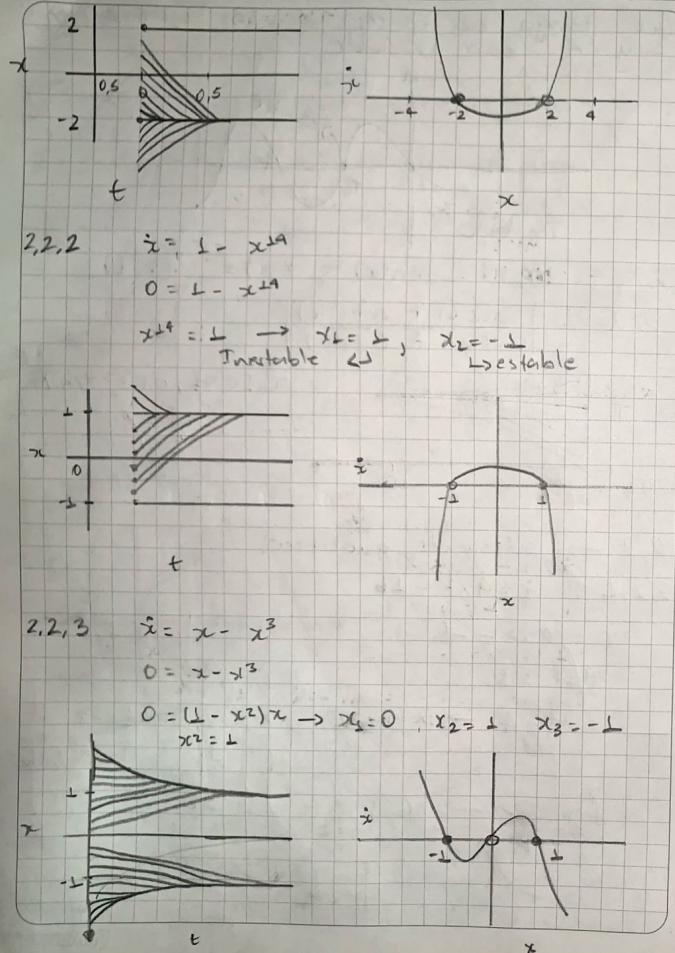 2
x
0,5 0 0,5
-2
t
ẋ
-4 -2 2 4
x
2,2,2 ẋ = 1 - x^14
0 = 1 - x^14
x^14 = 1 → x₁ = 1, x₂ = -1
Inestable ↵ ↳ estable
1
x
0
-1
t
ẋ
-1 1
x
2,2,3 ẋ = x - x³
0 = x - x³
0 = (1 - x²)x → x₁ = 0, x₂ = 1 x₃ = -1
x² = 1
1
x
-1
t
ẋ
-1 1
x